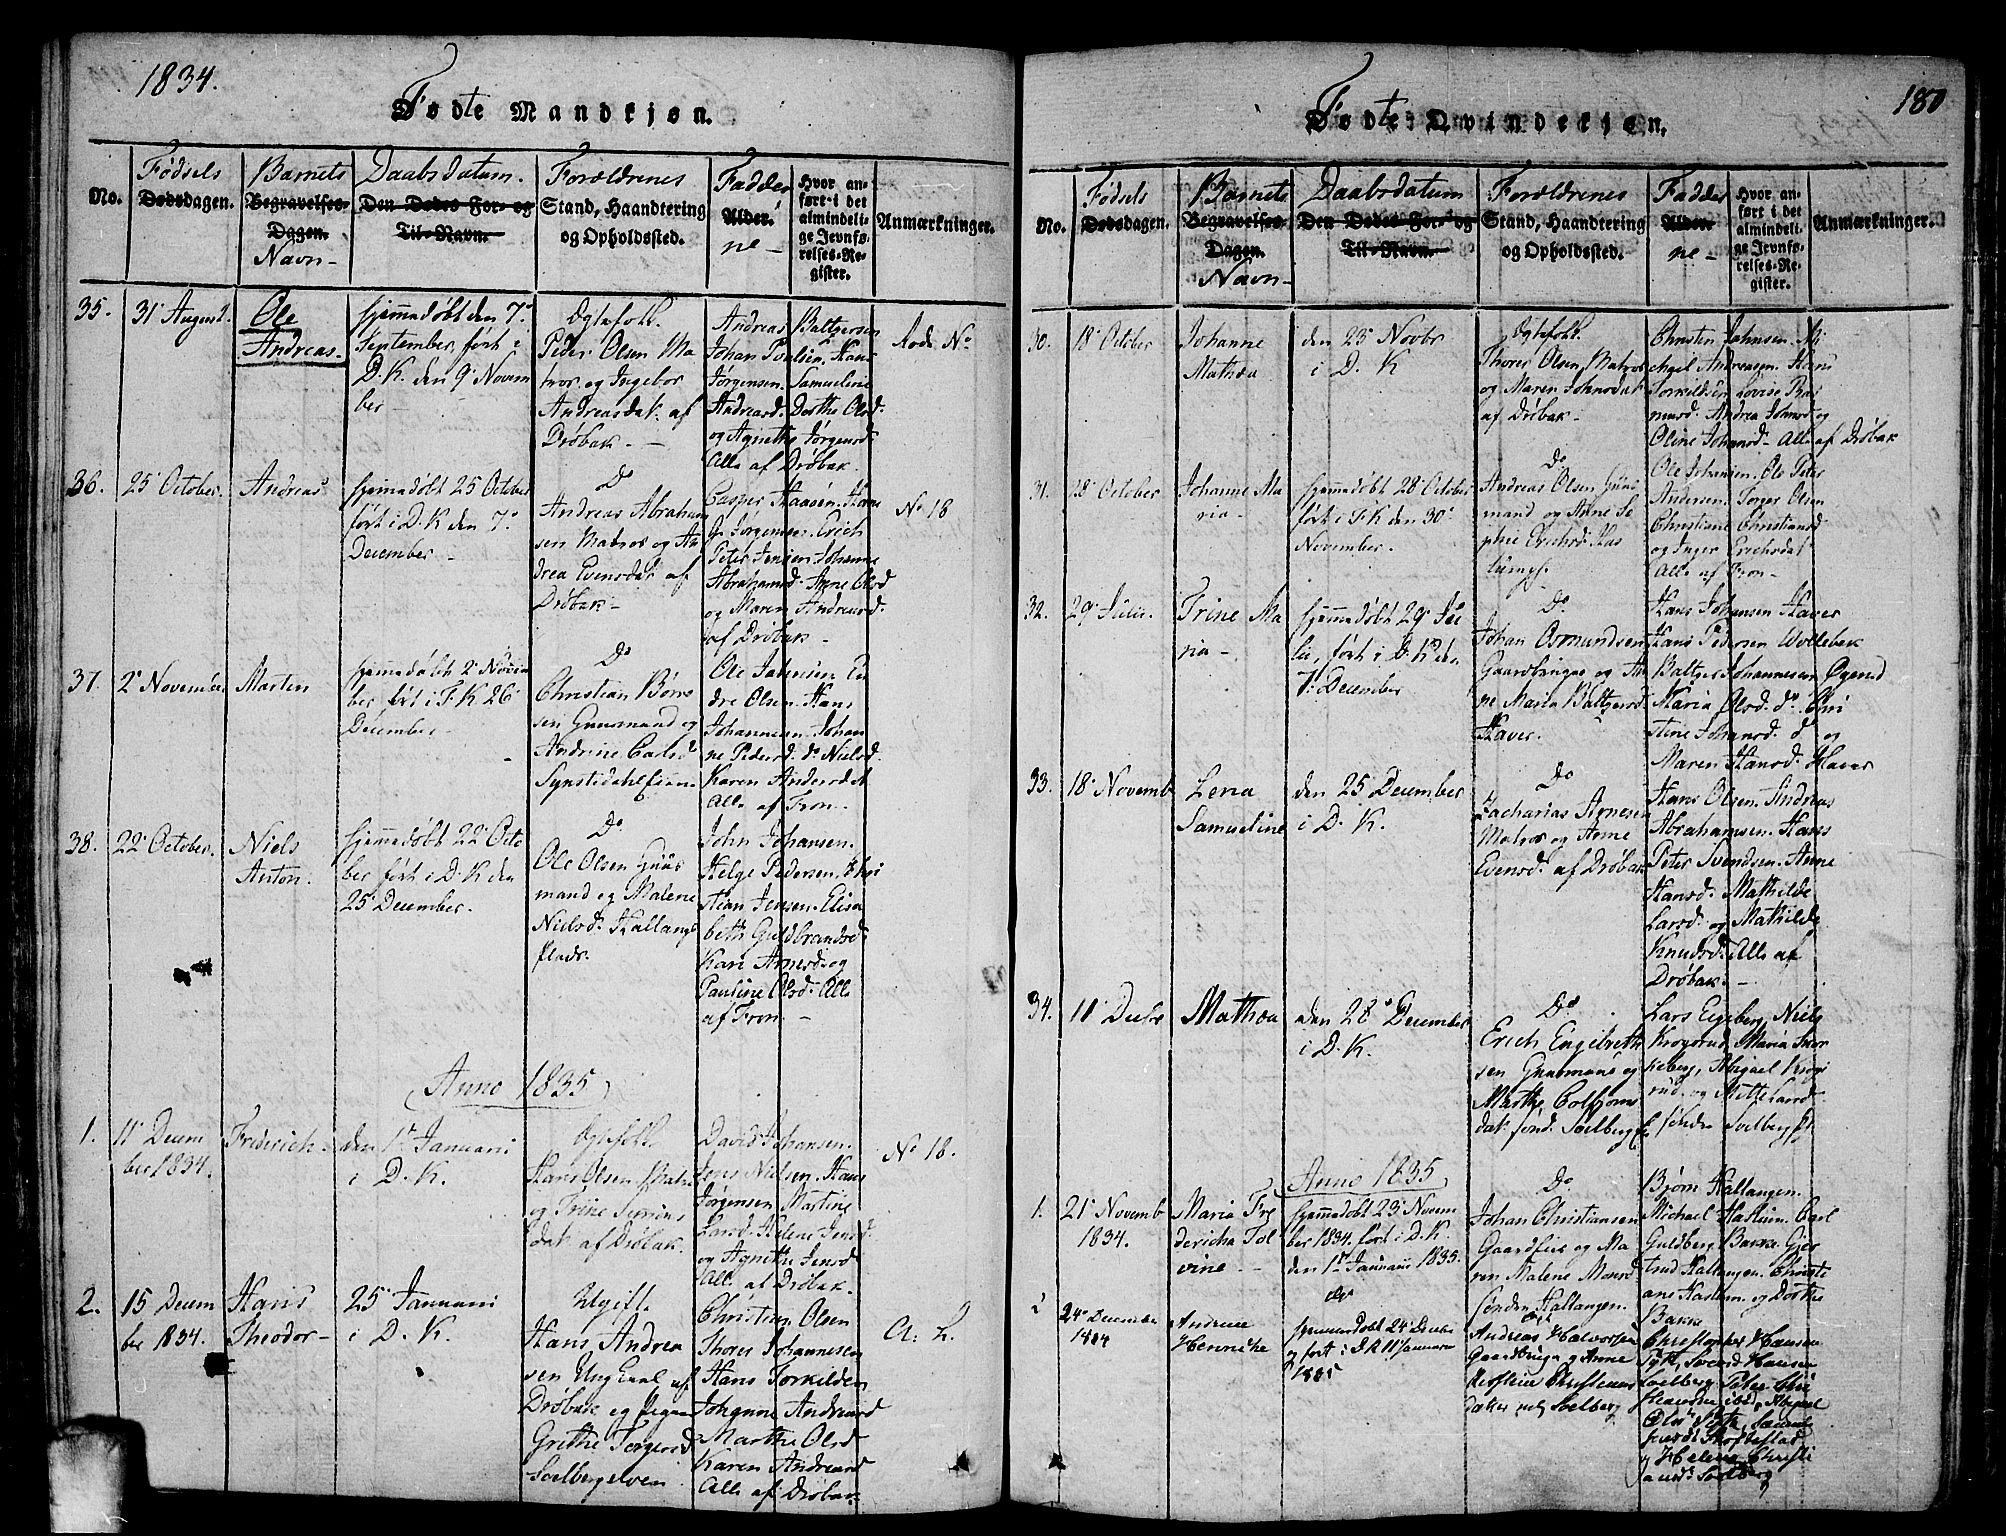 1834.
Fødte Mandkjøn.
No.
Fødsels
Dødsdagen.
Barnets
Begravelses-
Dagen.
Navn-
Daabsdatum.
Den Dødes For- og
Til-Navn.
Forældrenes
Stand, Haandtering
og Opholdssted.
Fadder
Alder.
ne-
Hvor an-
ført i det
almindeli-
ge Jevnfø-
relses-Re-
gister.
Anmærkninger.
35.
31 August.
Ole
Andreas-
hjemmedøbt den 7de
September, ført i
D.K. den 9 Novem
ber-
Egtefolk.
Peder Olsen Ma-
tros og Ingebor
Andreasdat. af
Drøbak.-
Andreas Baltzersen
Johan Poulsen, Hans
Jørgensen. Samueline
Andreasd. Dorthe Olsd.
og Agnethe Jørgensd.
Alle af Drøbak.
36.
25 October.
Andreas
hjemmedøbt 25 October
ført i D.K den 7de
December
Do
Andreas Abraham
sen Matros og An
drea Evensdat. af
Drøbak-
Peter Jensen Johanne
Abrahamsd. Anne Olsd
og Maren Andreasd.
af Drøbak-
No 18
37.
2 November
Morten
hjemmedøbt 2 Novem
ber, ført i F.K 26
December-
Do
Christian Børre
sen Guusmand og
Andrine Carlsd.
Ole Johnsen. En
dre Olsen. Hans
Johannesen Johan
ne Pedersd. do Nielsd.
Karen Andersdat
Alle af Fron-
38.
22 October.
Niels
Anton.
hjemmedøbt 22 Octo
ber ført i D.K den
25 December.
Do
Ole Olsen Guus
mand og Malene
Nielsd. Hallangs
plads.
John Johansen.
Helge Pedersen. Chri
stian Jensen. Elisa
beth Guldbrandsd.
Kari Arnesd. og
Pauline Olsd. Alle
af Fron.-
Anno 1835
1.
11 Decem
ber 1834.
Friderich-
den 1te Januari
i D.K.
Egtefolk.
Hans Olsen Matro
og Trine
dat af Drøbak.
David Johansen.
Jens Nielsen. Hans
Jørgensen Martine
Larsd. Helene Jensd.
og Agnethe Jensd
Alle af Drøbak.
No 18.
2.
15 Decem
ber 1834.
Hans
Theodor-
25 Januari
i D.K.
Ugift.
Hans Andrea
sen Ung Karl af
Drøbak og Pigen
Grethe Torgersd.
Christian Olsen
Thores Johannesen
Hans Torkildsen
Johanne Andreasd
Marthe Olsd
Karen Andreasd
Alle af Drøbak-
180
Fødte Qvindekjøn.
No.
Fødsels
Dødsdagen.
Barnets
Begravelses-
Dagen.
Navn-
Daabsdatum
Den Dødes For- og
Til-Navn.
Forældrenes
Stand, Haandtering
og Opholdssted.
Fadder
Alder.
ne-
Hvor an-
ført i det
almindeli-
ge Jevnfø-
relses-Re-
gister.
Anmærkninger.
30.
18 October
Johanne
Mathea
den 23 Novbr
i D.K
Egtefolk.
Thores Olsen Matros
og Maren Johnsdat
af Drøbak-
Christen Johnsen. Mi
chael Andreasen. Hans
Torkildsen Lovise Ras
musd. Andrea Johnsd og
Oline Johansd. Alle af Drøbak
31.
28 October
Johanne Ma
ria-
hjemmedøbt 28 October
ført i F.K den 30
November.
Do
Andreas Olsen Guus
mand og Anne So
phie Erichsd.
Ole Johansen. Ole Peter
Andersen. Torger Olsen
Christiane Christiansd
og Inger Erichsdat
Alle af Fron-
32.
29 Julii.
Trine Ma
ria-
hjemmedøbt 29 Ju
lii, ført i D.K den
7 December
Do
Johan Osmundsen
Gaardbruger og An
ne Maria Baltzersd.
Haver.
Hans Johansen Haver
Hans Pedersen Wollebek
Baltzer Johannesen
Maria Olsd. do. Chri
stine Johansd. do og
Maren Hansd. Haver
33.
18 Novemb
Lena
Samueline
den 25 December
i D.K.
Do
Zacharias Arnesen
Matros og Anne
Evensd. af Drøbak
Hans Olsen. Andreas
Abrahamsen. Hans
Peter Svendsen. Anne
Hansd. Mathilde
Larsd. og Mathilde
Knudsd. Alle af
Drøbak.-
34.
11 Decbr
Mathea
den 28 December
i D.K.
Do
Erich Engebreth
sen Guusmand og
Marthe Torbjørns
dat. søndr Solberg
Lars Egeberg, Niels
Krogsrud, Maria
Abigael Krogs
rud, og Mette Larsd.
søndre Solberg
Anno 1835
1.
21 Novemb
1834.
Maria Fre
dericha Tol
vine-
hjemmedøbt 23 Novem
ber 1834. ført i D.K.
den 1te Januarii 1835.
Do
Johan Christiansen
Gaardfeier og Ma
ren Malene Monsd
sønden Hallangen.
Bjørn Hallangen.
Michael Haslum. Carl
Guldberg Bakke. Gjer
trud Hallangen. Christi
ane Haslum. og Dorthe
Bakke
2
24 December
1834
Andrine
Henriche
hjemmedøbt 24 Decbr
og ført i D.K 11 Januar
1835
Andreas Halvorsen
Gaardbruger og Anne
Christopher Hansen
Svend Hansen
Solberg
og Helene Christi
ansd. Solberg